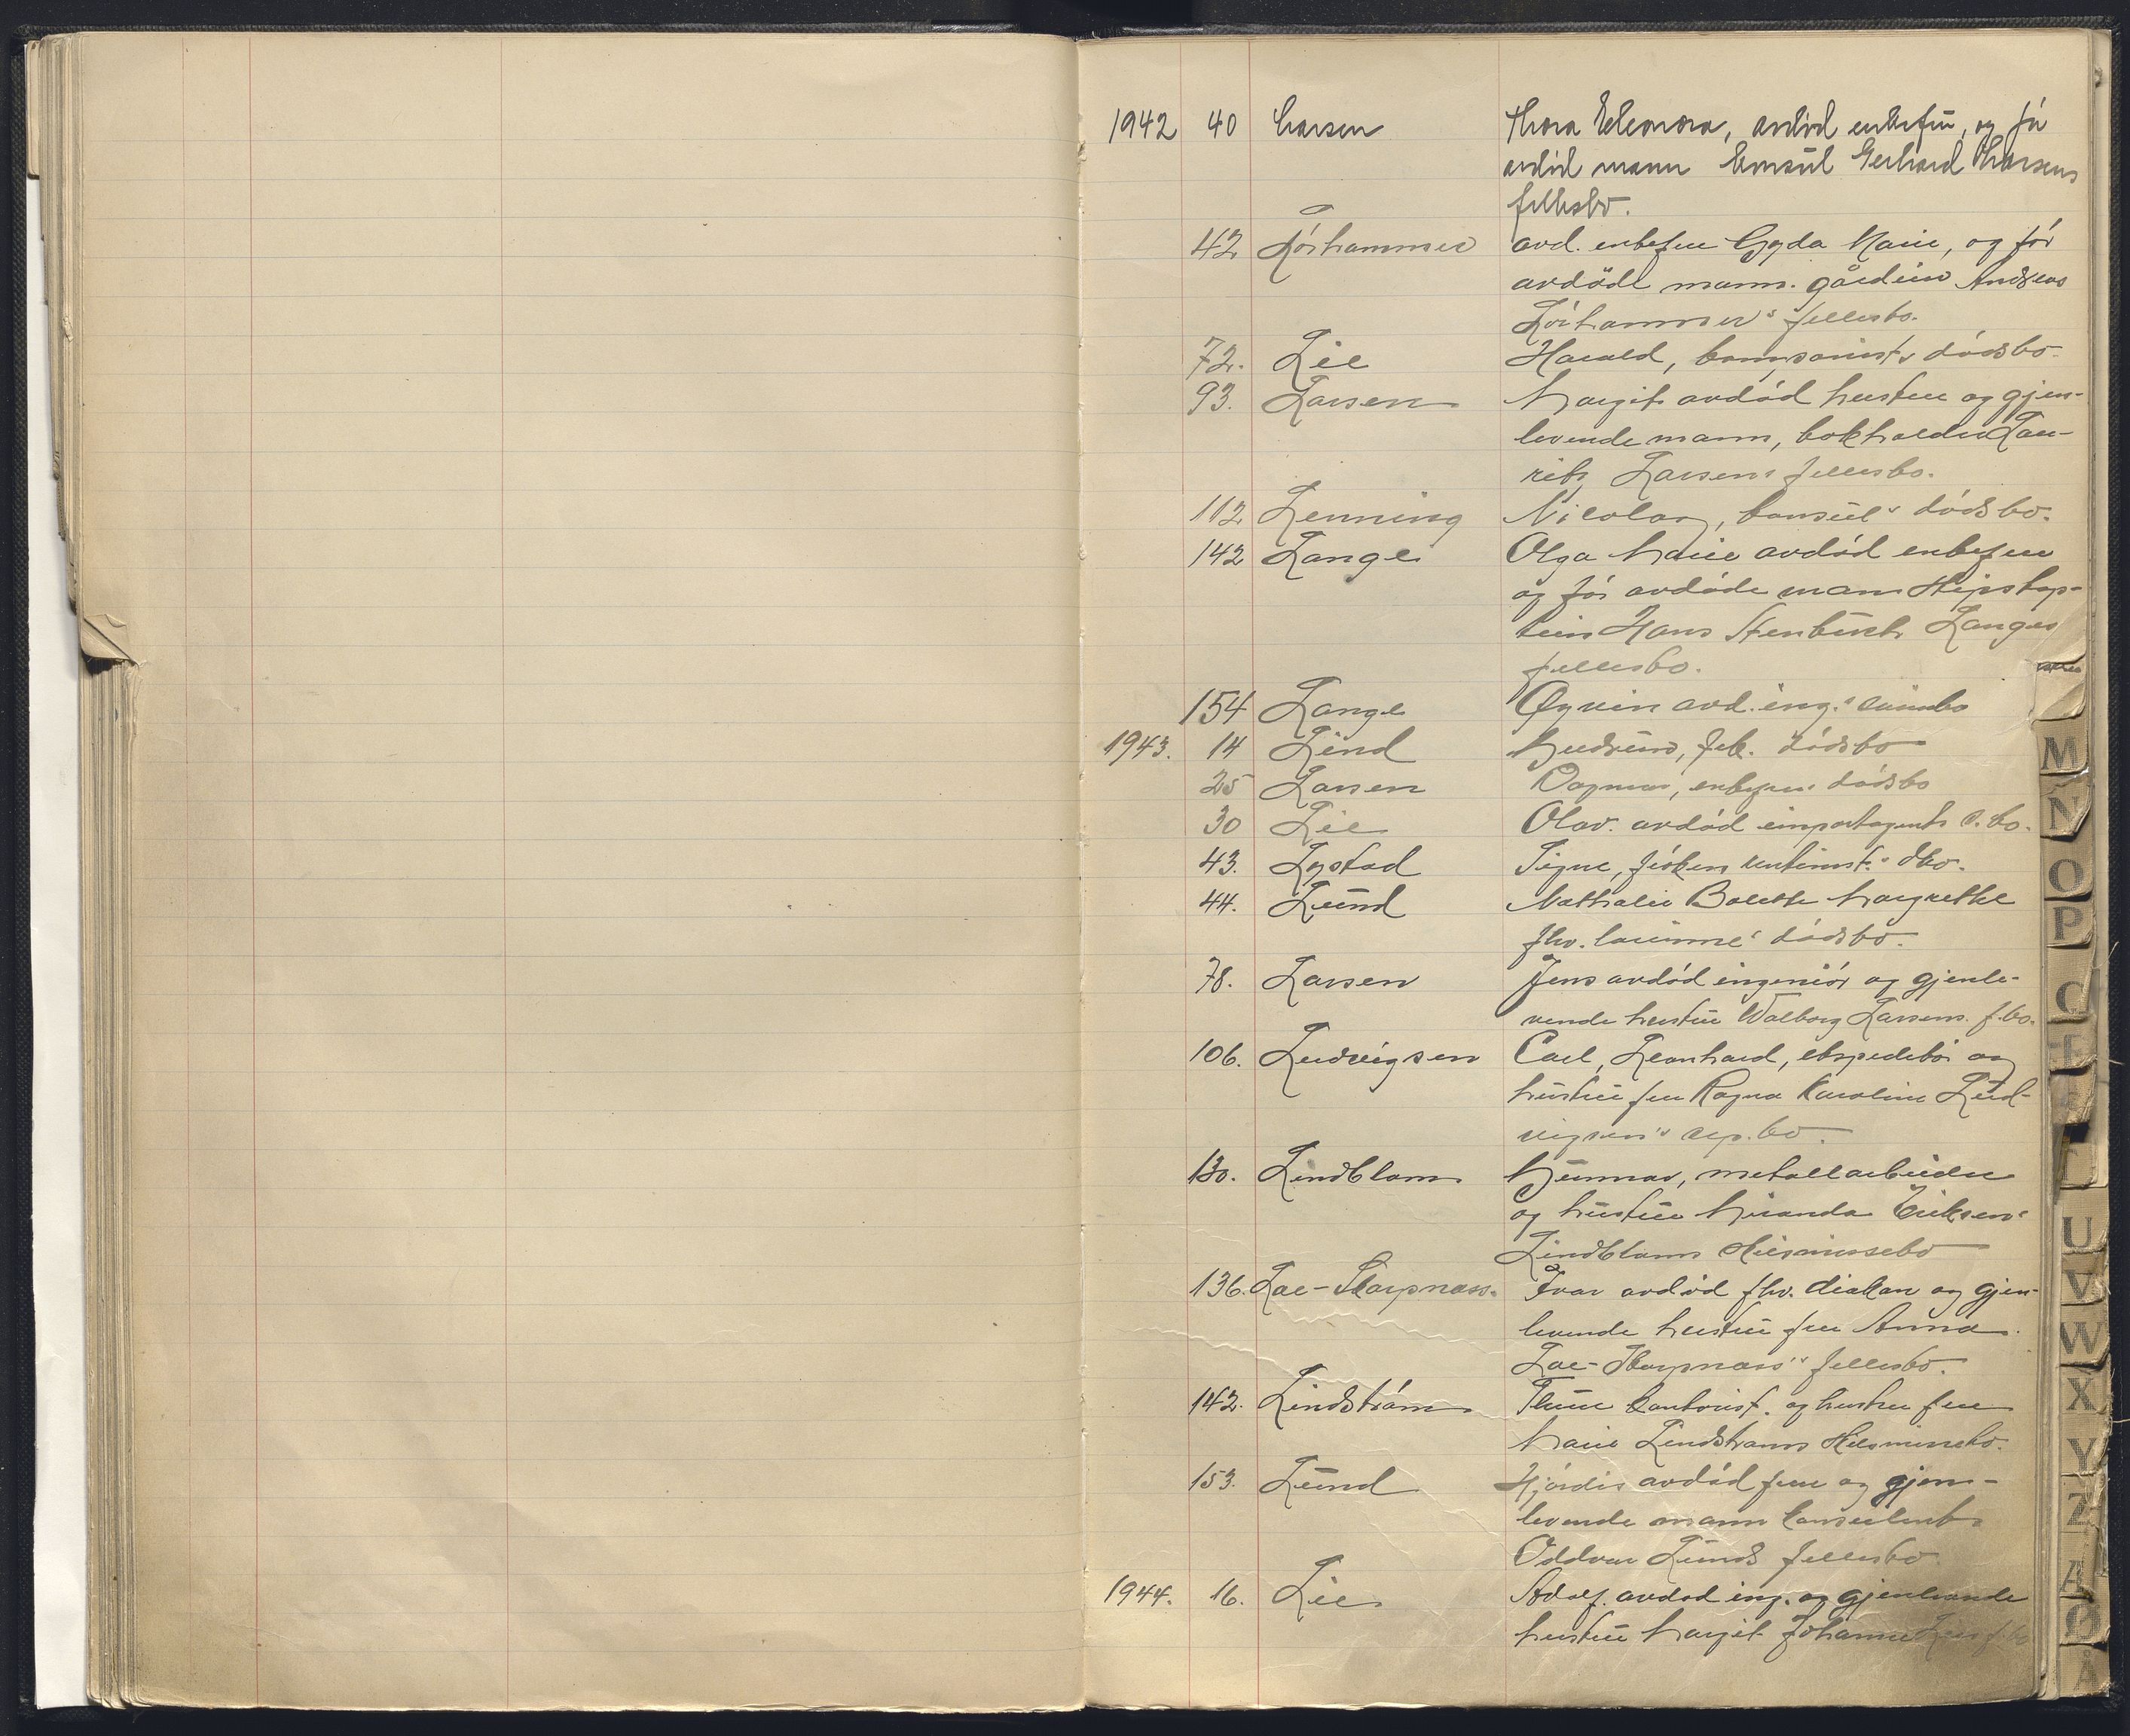 1942 40 Larsen Thora Eleonora, avdød enkefru, og før
avdød mann Konsul Gerhard Larsens
fellesbo.
42 Lörhammer avd. enkefru Gyda Marie, og før
avdöde mann. gårdeier Andreas
Lörhammer's fellesbo.
72. Lie Harald, komponists dödsbo.
93. Larsen Margit avdöd hustru og gjen-
levende mann, bokholder Lau-
ritz Larsens fellesbo.
112 Lenning Nicolay, konsul's dödsbo.
142 Lange Olga Marie avdöd enkefru
og før avdöde mann Skipskap-
tein Hans Stenbuch Langes
fellesbo.
154 Lange Øyvin avd. ing.'s
1943. 14 Lind Gudrun, frk. dödsbo
25 Larsen Dagmar, enkefrus dödsbo
30 Lie Olav. avdöd importagents d.bo.
43. Lystad Signe, fröken dbo.
44. Lund Nathalie Bolette Margrethe
fhv. lærerinne's dödsbo.
78. Larsen Jens avdöd ingeniör og gjenle-
vende hustru Walborg Larsens f.bo.
106. Ludvigsen Carl, Leonhard, ekspeditör og
hustru fru Ragna Karoline Lud-
vigsen's sep.bo.
130. Lindblom Gunnar, metallarbeider
og hustru Miranda Eriksen
Lindbloms skilsmissebo
136. Lae-Skarpnass. Ivar avdöd fhv. diakon og gjen-
levende hustru fru Anna
Lae-Skarpnass's fellesbo.
142. Lindström Thure kontorist. og hustru fru
Marie Lindstroms Skilsmissebo.
153. Lund Hjördis avdöd frue og gjen-
levende mann konsulent
Oddvar Lunds fellesbo.
1944. 16. Lie Adolf. avdød ing. og gjenlevende
hustru Margit Johanne Lies f.bo
M
N
O
P
U
V
W
X
Y
Z
Æ
Ø
Å